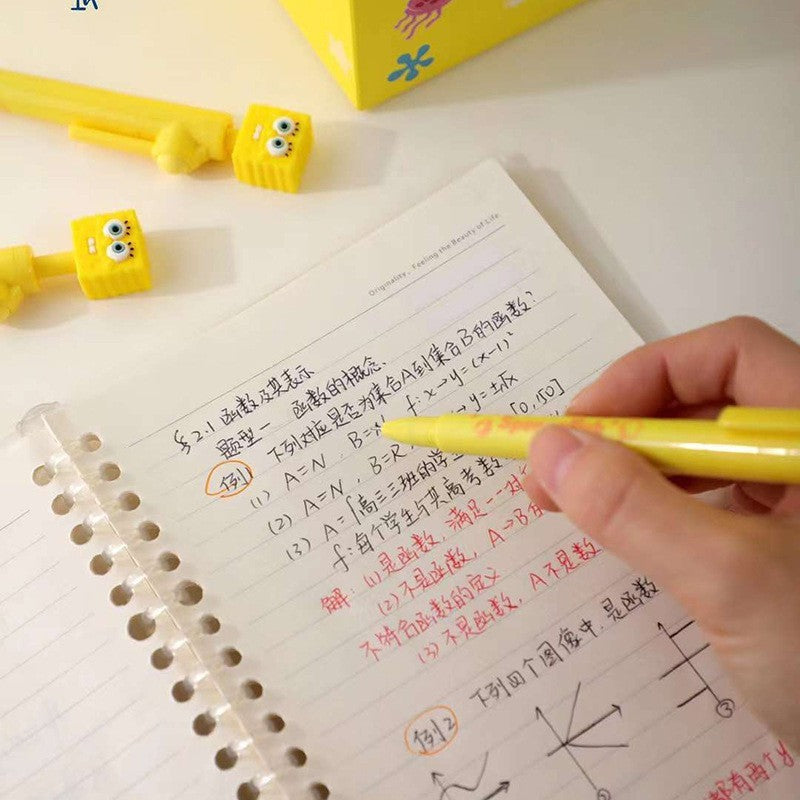 Originality , Feeling the Beauty of Life
§2.1 函数及其表示
题型一 函数的概念.
例1 下列对应是否为集合A到集合B的函数?
(1) A=N , B= f:x→y=(x-1)²
(2) A=N , B=R →y=±√x
(3) A={高三三班的学 [0,150]
f:每个学生与其高考数
解: (1)是函数, 满足一一对
(2)不是函数, A→B
不符合函数的定义
(3)不是函数, A不是数
例2 下列四个图像中, 是函数
③
都有两个y